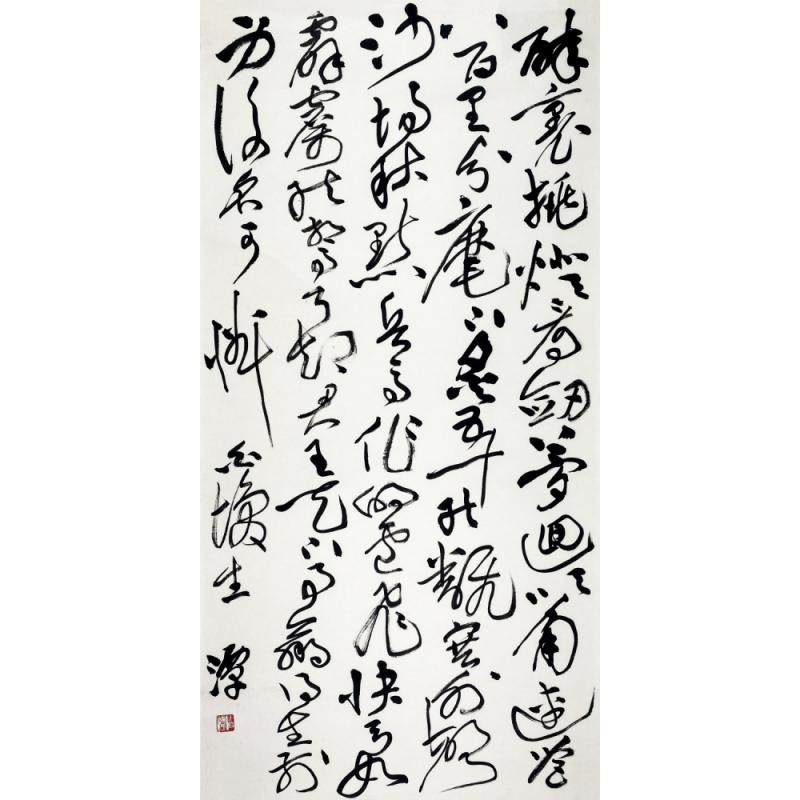 醉裏挑燈看劍夢迴吹角連營
八百里分麾下炙五十弦翻塞外聲
沙場秋點兵馬作的盧飛快弓如
霹靂弦驚了卻君王天下事贏得生前
身後名可憐白髮生 潭